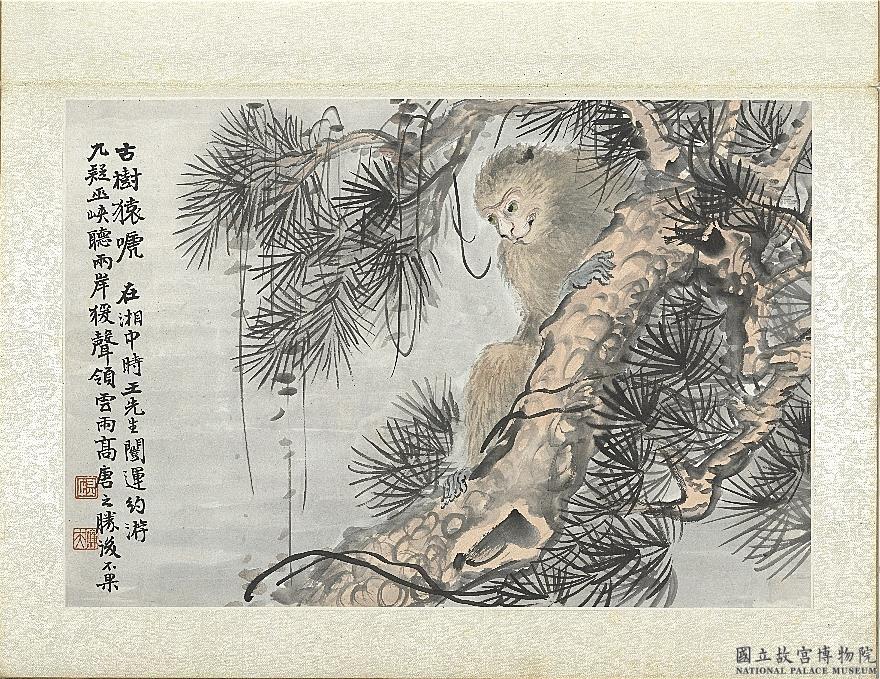 古樹猿嗁　在湘中時王先生闓運約游
九疑巫峽聽兩岸猨聲領雲雨高唐之勝後不果
國立故宮博物院
NATIONAL PALACE MUSEUM